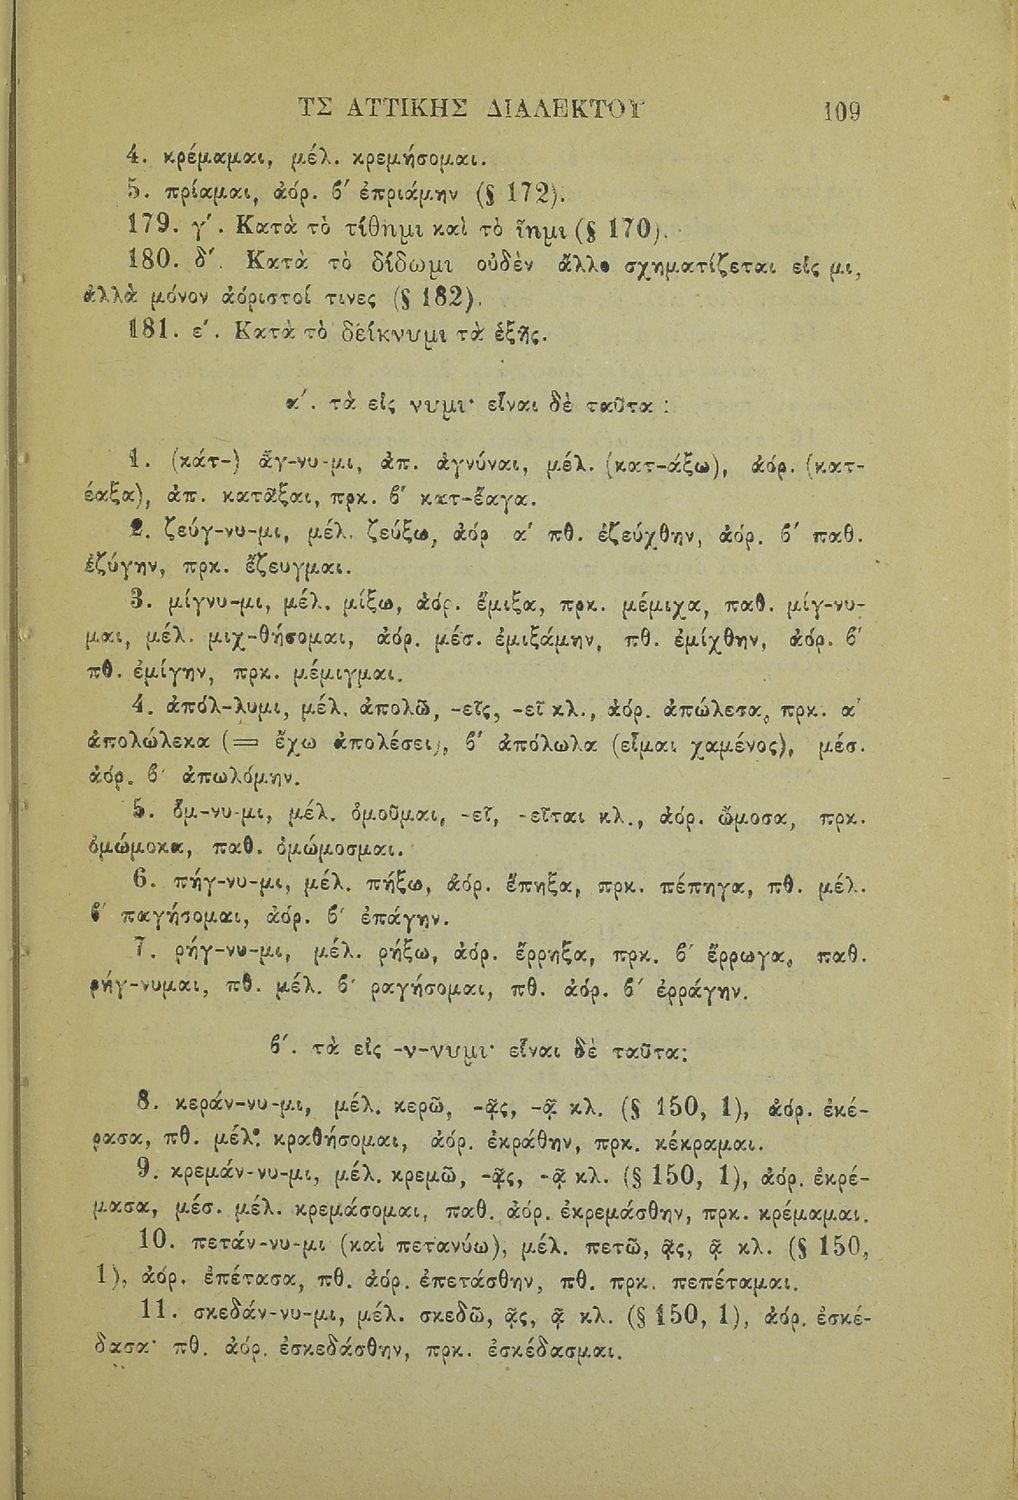 ΤΣ ΑΤΤΙΚΗΣ ΔΙΑΛΕΚΤΟΥ 109
4. κρέμαμαι, μέλ. κρεμήσομαι.
5. πρίαμαι, ἀόρ. β′ ἐπριάμην (§ 172).
179. γ′. Κατὰ τὸ τίθημι καὶ τὸ ἵημι (§ 170).
180. δ′. Κατὰ τὸ δίδωμι οὐδὲν ἄλλο σχηματίζεται εἰς μι,
ἀλλὰ μόνον ἀόριστοί τινες (§ 182).
181. ε′. Κατὰ τὸ δείκνυμι τὰ ἑξῆς.
α′. τὰ εἰς νυμι· εἶναι δὲ ταῦτα :
1. (κάτ-) ἄγ-νυ-μι, ἀπ. ἀγνύναι, μέλ. (κατ-άξω), ἀόρ. (κατ-
έαξα), ἀπ. κατᾶξαι, πρκ. β′ κατ-έαγα.
2. ζεύγ-νυ-μι, μέλ. ζεύξω, ἀόρ α′ πθ. ἐζεύχθην, ἀόρ. β′ παθ.
ἐζύγην, πρκ. ἔζευγμαι.
3. μίγνυ-μι, μέλ. μίξω, ἀόρ. ἔμιξα, πρκ. μέμιχα, παθ. μίγ-νυ-
μαι, μέλ. μιχ-θήσομαι, ἀόρ. μέσ. ἐμιξάμην, πθ. ἐμίχθην, ἀόρ. β′
πθ. ἐμίγην, πρκ. μέμιγμαι.
4. ἀπόλ-λυμι, μέλ. ἀπολῶ, -εῖς, -εῖ κλ., ἀόρ. ἀπώλεσα, πρκ. α′
ἀπολώλεκα (= ἔχω ἀπολέσει), β′ ἀπόλωλα (εἶμαι χαμένος), μέσ.
ἀόρ. β′ ἀπωλόμην.
5. ὄμ-νυ-μι, μέλ. ὀμοῦμαι, -εῖ, -εῖται κλ., ἀόρ. ὤμοσα, πρκ.
ὀμώμοκα, παθ. ὀμώμοσμαι.
6. πήγ-νυ-μι, μέλ. πήξω, ἀόρ. ἔπηξα, πρκ. πέπηγα, πθ. μέλ.
β′ παγήσομαι, ἀόρ. β′ ἐπάγην.
7. ρήγ-νυ-μι, μέλ. ρήξω, ἀόρ. ἔρρηξα, πρκ. β′ ἔρρωγα, παθ.
ρήγ-νυμαι, πθ. μέλ. β′ ραγήσομαι, πθ. ἀόρ. β′ ἐρράγην.
β′. τὰ εἰς -ν-νυμι· εἶναι δὲ ταῦτα:
8. κεράν-νυ-μι, μέλ. κερῶ, -ᾷς, -ᾷ κλ. (§ 150, 1), ἀόρ. ἐκέ-
ρασα, πθ. μέλ. κραθήσομαι, ἀόρ. ἐκράθην, πρκ. κέκραμαι.
9. κρεμάν-νυ-μι, μέλ. κρεμῶ, -ᾷς, -ᾷ κλ. (§ 150, 1), ἀόρ. ἐκρέ-
μασα, μέσ. μέλ. κρεμάσομαι, παθ. ἀόρ. ἐκρεμάσθην, πρκ. κρέμαμαι.
10. πετάν-νυ-μι (καὶ πετανύω), μέλ. πετῶ, ᾷς, ᾷ κλ. (§ 150,
1), ἀόρ. ἐπέτασα, πθ. ἀόρ. ἐπετάσθην, πθ. πρκ. πεπέταμαι.
11. σκεδάν-νυ-μι, μέλ. σκεδῶ, ᾷς, ᾷ κλ. (§ 150, 1), ἀόρ. ἐσκέ-
δασα· πθ. ἀόρ. ἐσκεδάσθην, πρκ. ἐσκέδασμαι.